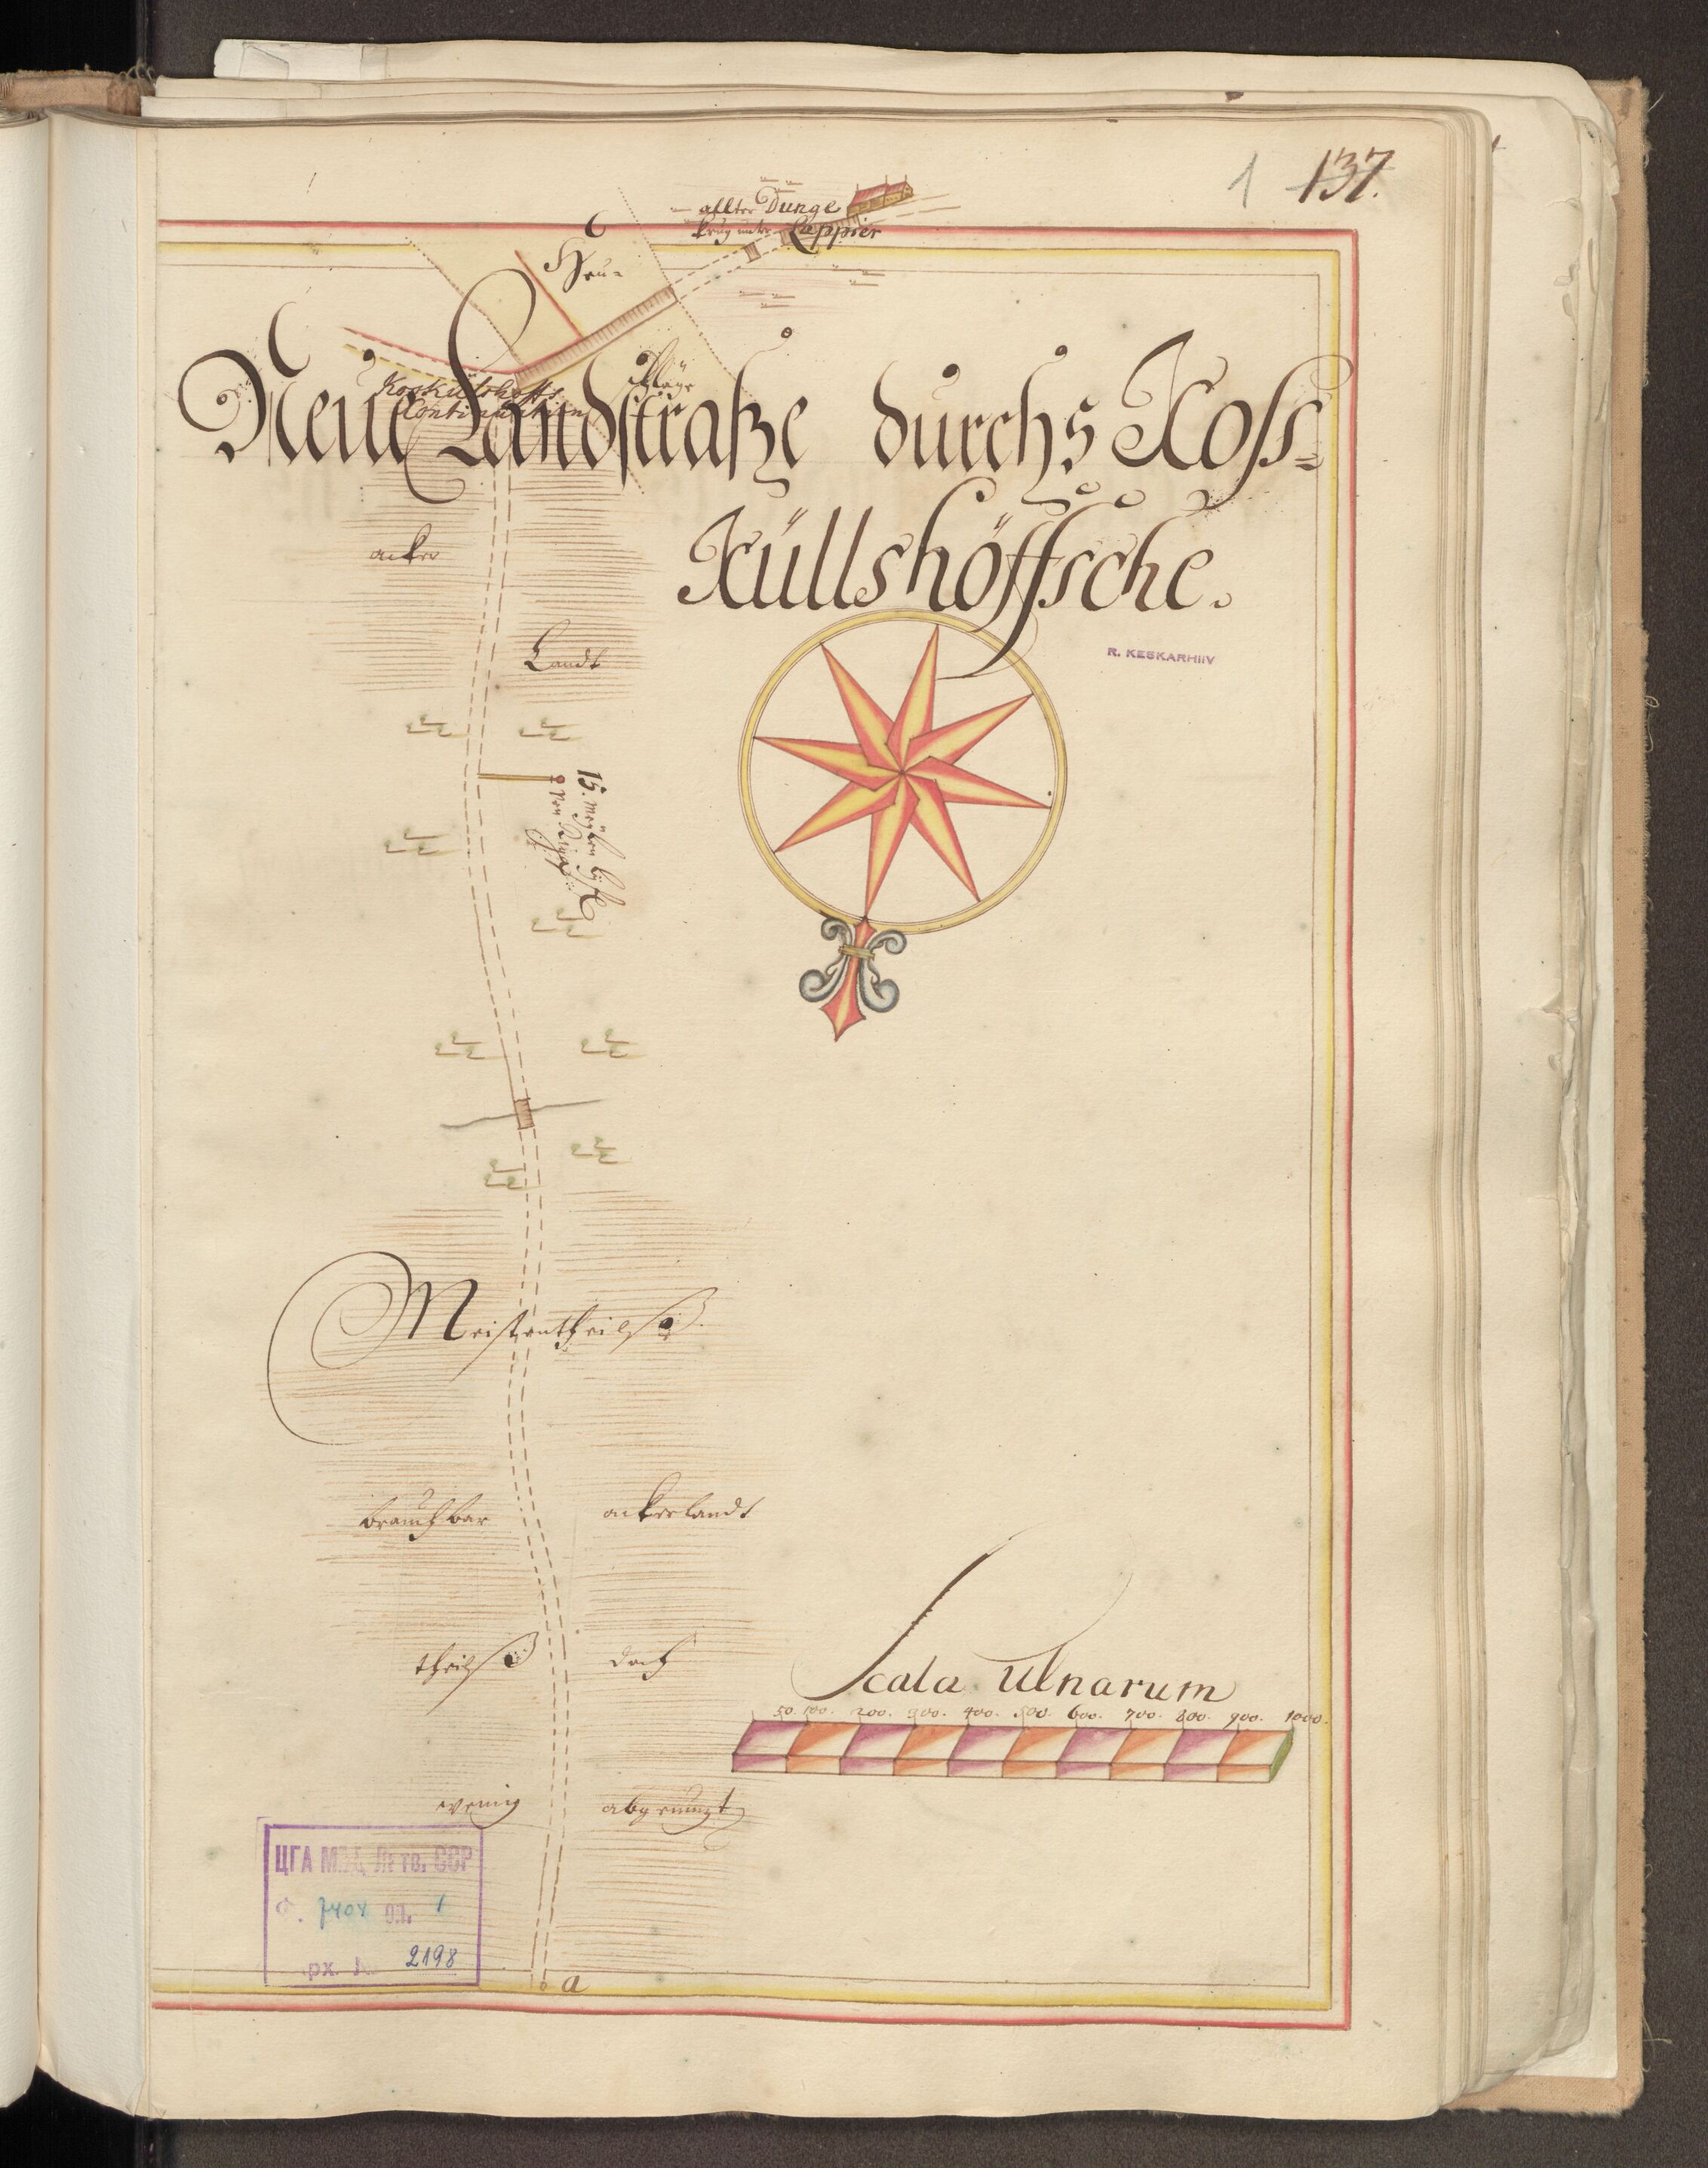 1 137.
allter Dunge
Krug unter Lappier
Heu=
Schläge
Koskülshoffs
Continuation
Neue Landstraße durchs Koss=
Küllshöffsche.
acker
Landt
R. KESKARHIIV
15. meylen
von Riga
Meistentheilß
brauchbar ackerlandt
theilß doch
wenig abgenutzt
Scala Ulnarum
50. 100. 200. 300. 400. 500. 600. 700. 800. 900. 1000.
ЦГА МВД Латв. ССР
Ф. 7404 оп. 1
арх. № 2198
a